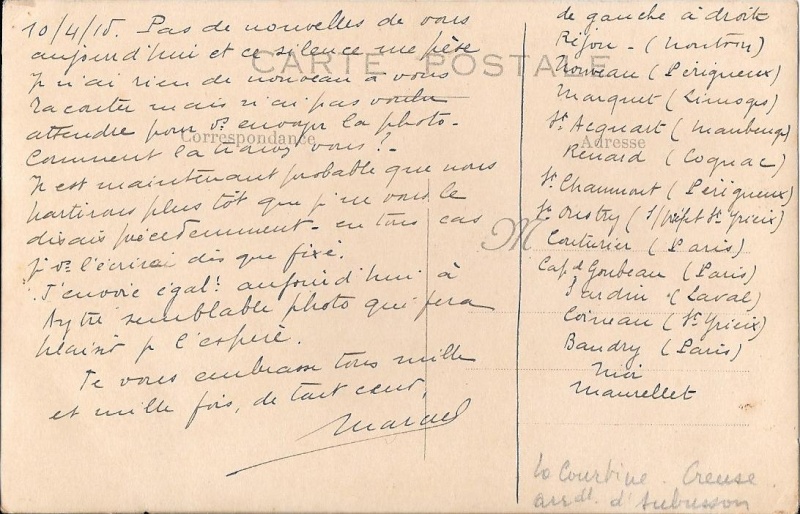 10/4/15. Pas de nouvelles de vous
aujourd'hui et ce silence me pèse
Je n'ai rien de nouveau à vous
raconter mais n'ai pas voulu
attendre pour vs envoyer la photo-
Comment la trouvez vous? -
Il est maintenant probable que nous
partirons plus tôt que je ne vous le
disais précédemment - en tous cas
je vs l'écrirai dès que fixé.
J'envoie égalt aujourd'hui à
Aytré semblable photo qui fera
plaisir je l'espère.
Je vous embrasse tous mille
et mille fois, de tout cœur,
Marcel
CARTE POSTALE
Correspondance
Adresse
M
de gauche à droite
Réjou - (Nontron)
Nouveau (Périgueux)
Marquet (Limoges)
St Acquart (Maubeuge)
Renard (Cognac)
St Chaumont (Périgueux)
Lt Oustry (S/préfet St Yrieix)
Couturier (Paris)
Cap. Goubeau (Paris)
Jardin (Laval)
Coineau (St Yrieix)
Baudry (Paris)
Moi
Maurellet
La Courtine - Creuse
arrdt d'Aubusson